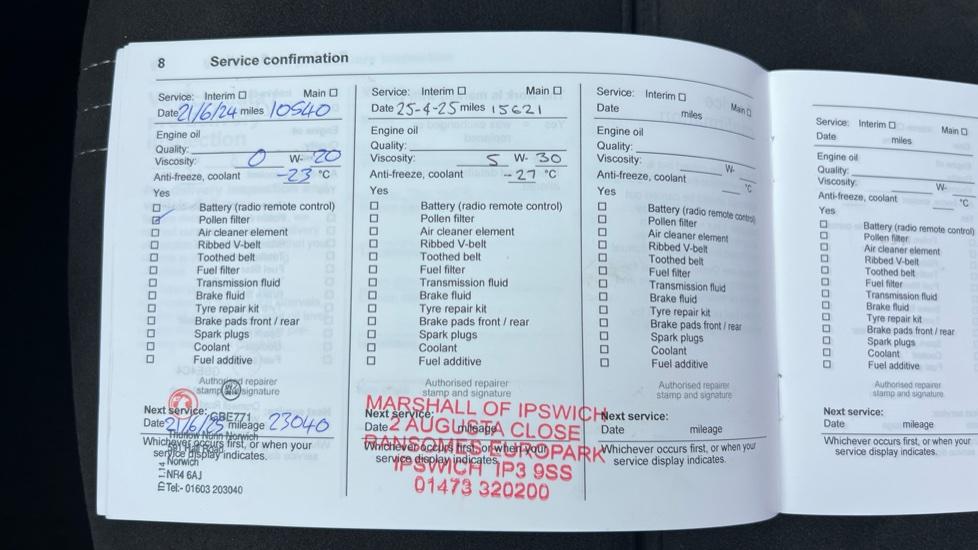 8 Service confirmation
Service: Interim Main
Date 21/6/24 miles 10540
Engine oil
Quality:
Viscosity: 0 W- 20
Anti-freeze, coolant -23 °C
Yes
Battery (radio remote control)
Pollen filter
Air cleaner element
Ribbed V-belt
Toothed belt
Fuel filter
Transmission fluid
Brake fluid
Tyre repair kit
Brake pads front / rear
Spark plugs
Coolant
Fuel additive
Authorised repairer
stamp and signature
Next service: GBE771
Date 21/6/25 mileage 23040
Thurlow Nunn Norwich
Whichever occurs first, or when your
service display indicates.
Norwich
NR4 6AJ
Tel:- 01603 203040
Service: Interim Main
Date 25-4-25 miles 15621
Engine oil
Quality:
Viscosity: 5 W- 30
Anti-freeze, coolant -27 °C
Yes
Battery (radio remote control)
Pollen filter
Air cleaner element
Ribbed V-belt
Toothed belt
Fuel filter
Transmission fluid
Brake fluid
Tyre repair kit
Brake pads front / rear
Spark plugs
Coolant
Fuel additive
Authorised repairer
stamp and signature
MARSHALL OF IPSWICH
Next service:
Date mileage
2 AUGUSTA CLOSE
RANSOMES EUROPARK
Whichever occurs first, or when your
service display indicates.
IPSWICH IP3 9SS
01473 320200
Service: Interim Main
Date miles
Engine oil
Quality:
Viscosity: W-
Anti-freeze, coolant °C
Yes
Battery (radio remote control)
Pollen filter
Air cleaner element
Ribbed V-belt
Toothed belt
Fuel filter
Transmission fluid
Brake fluid
Tyre repair kit
Brake pads front / rear
Spark plugs
Coolant
Fuel additive
Authorised repairer
stamp and signature
Next service:
Date mileage
Whichever occurs first, or when your
service display indicates.
Service: Interim Main
Date miles
Engine oil
Quality:
Viscosity: W-
Anti-freeze, coolant °C
Yes
Battery (radio remote control)
Pollen filter
Air cleaner element
Ribbed V-belt
Toothed belt
Fuel filter
Transmission fluid
Brake fluid
Tyre repair kit
Brake pads front / rear
Spark plugs
Coolant
Fuel additive
Authorised repairer
stamp and signature
Next service:
Date mileage
Whichever occurs first, or when your
service display indicates.